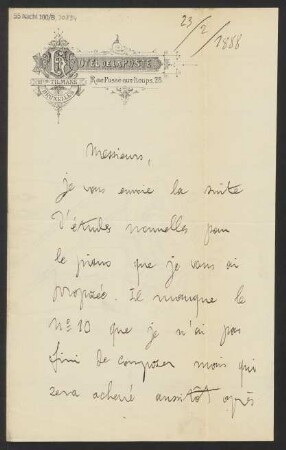 55 Nachl 100/B,
23/2/1888
HÔTEL DE LA POSTE
Rue Fossé aux loups, 28
TILMANS
BRUXELLES
Messieurs,
je vous envoie la suite
d'études nouvelles pour
le piano que je vous ai
proposée. Il manque le
Nº 10 que je n'ai pas
fini de composer mais qui
sera achevé aussitôt après